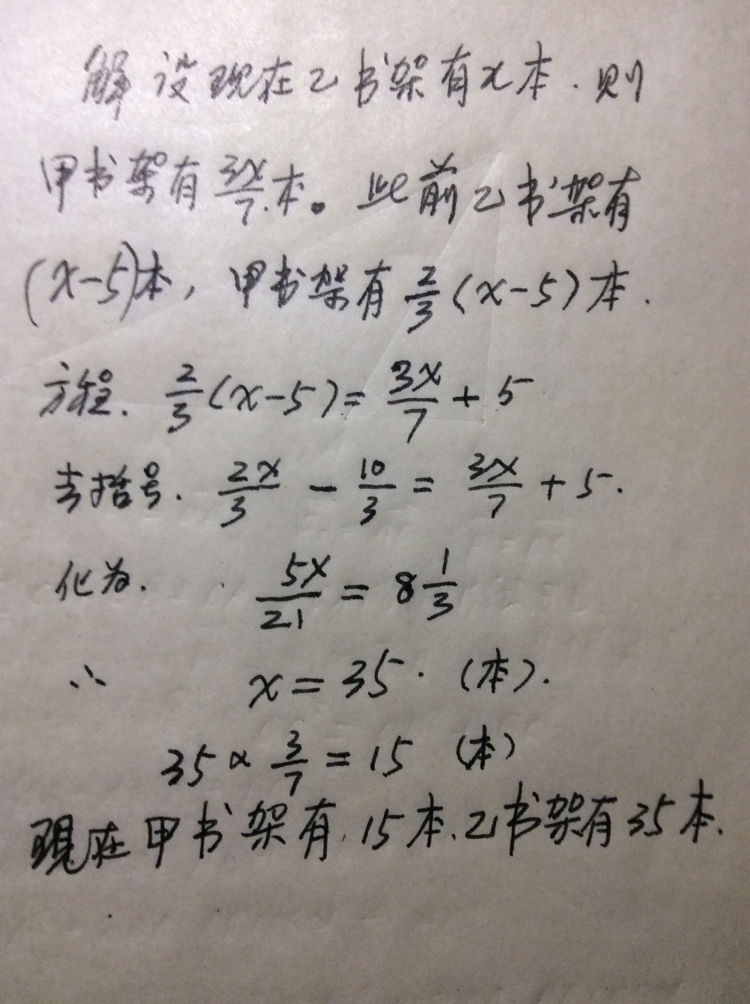 解设现在乙书架有x本.则
甲书架有3x/7本。此前乙书架有
(x-5)本,甲书架有2/3(x-5)本.
方程.2/3(x-5)=3x/7+5
去括号.2x/3-10/3=3x/7+5.
化为.5x/21=8 1/3
∴x=35.(本).
35×3/7=15(本)
现在甲书架有.15本.乙书架有35本.